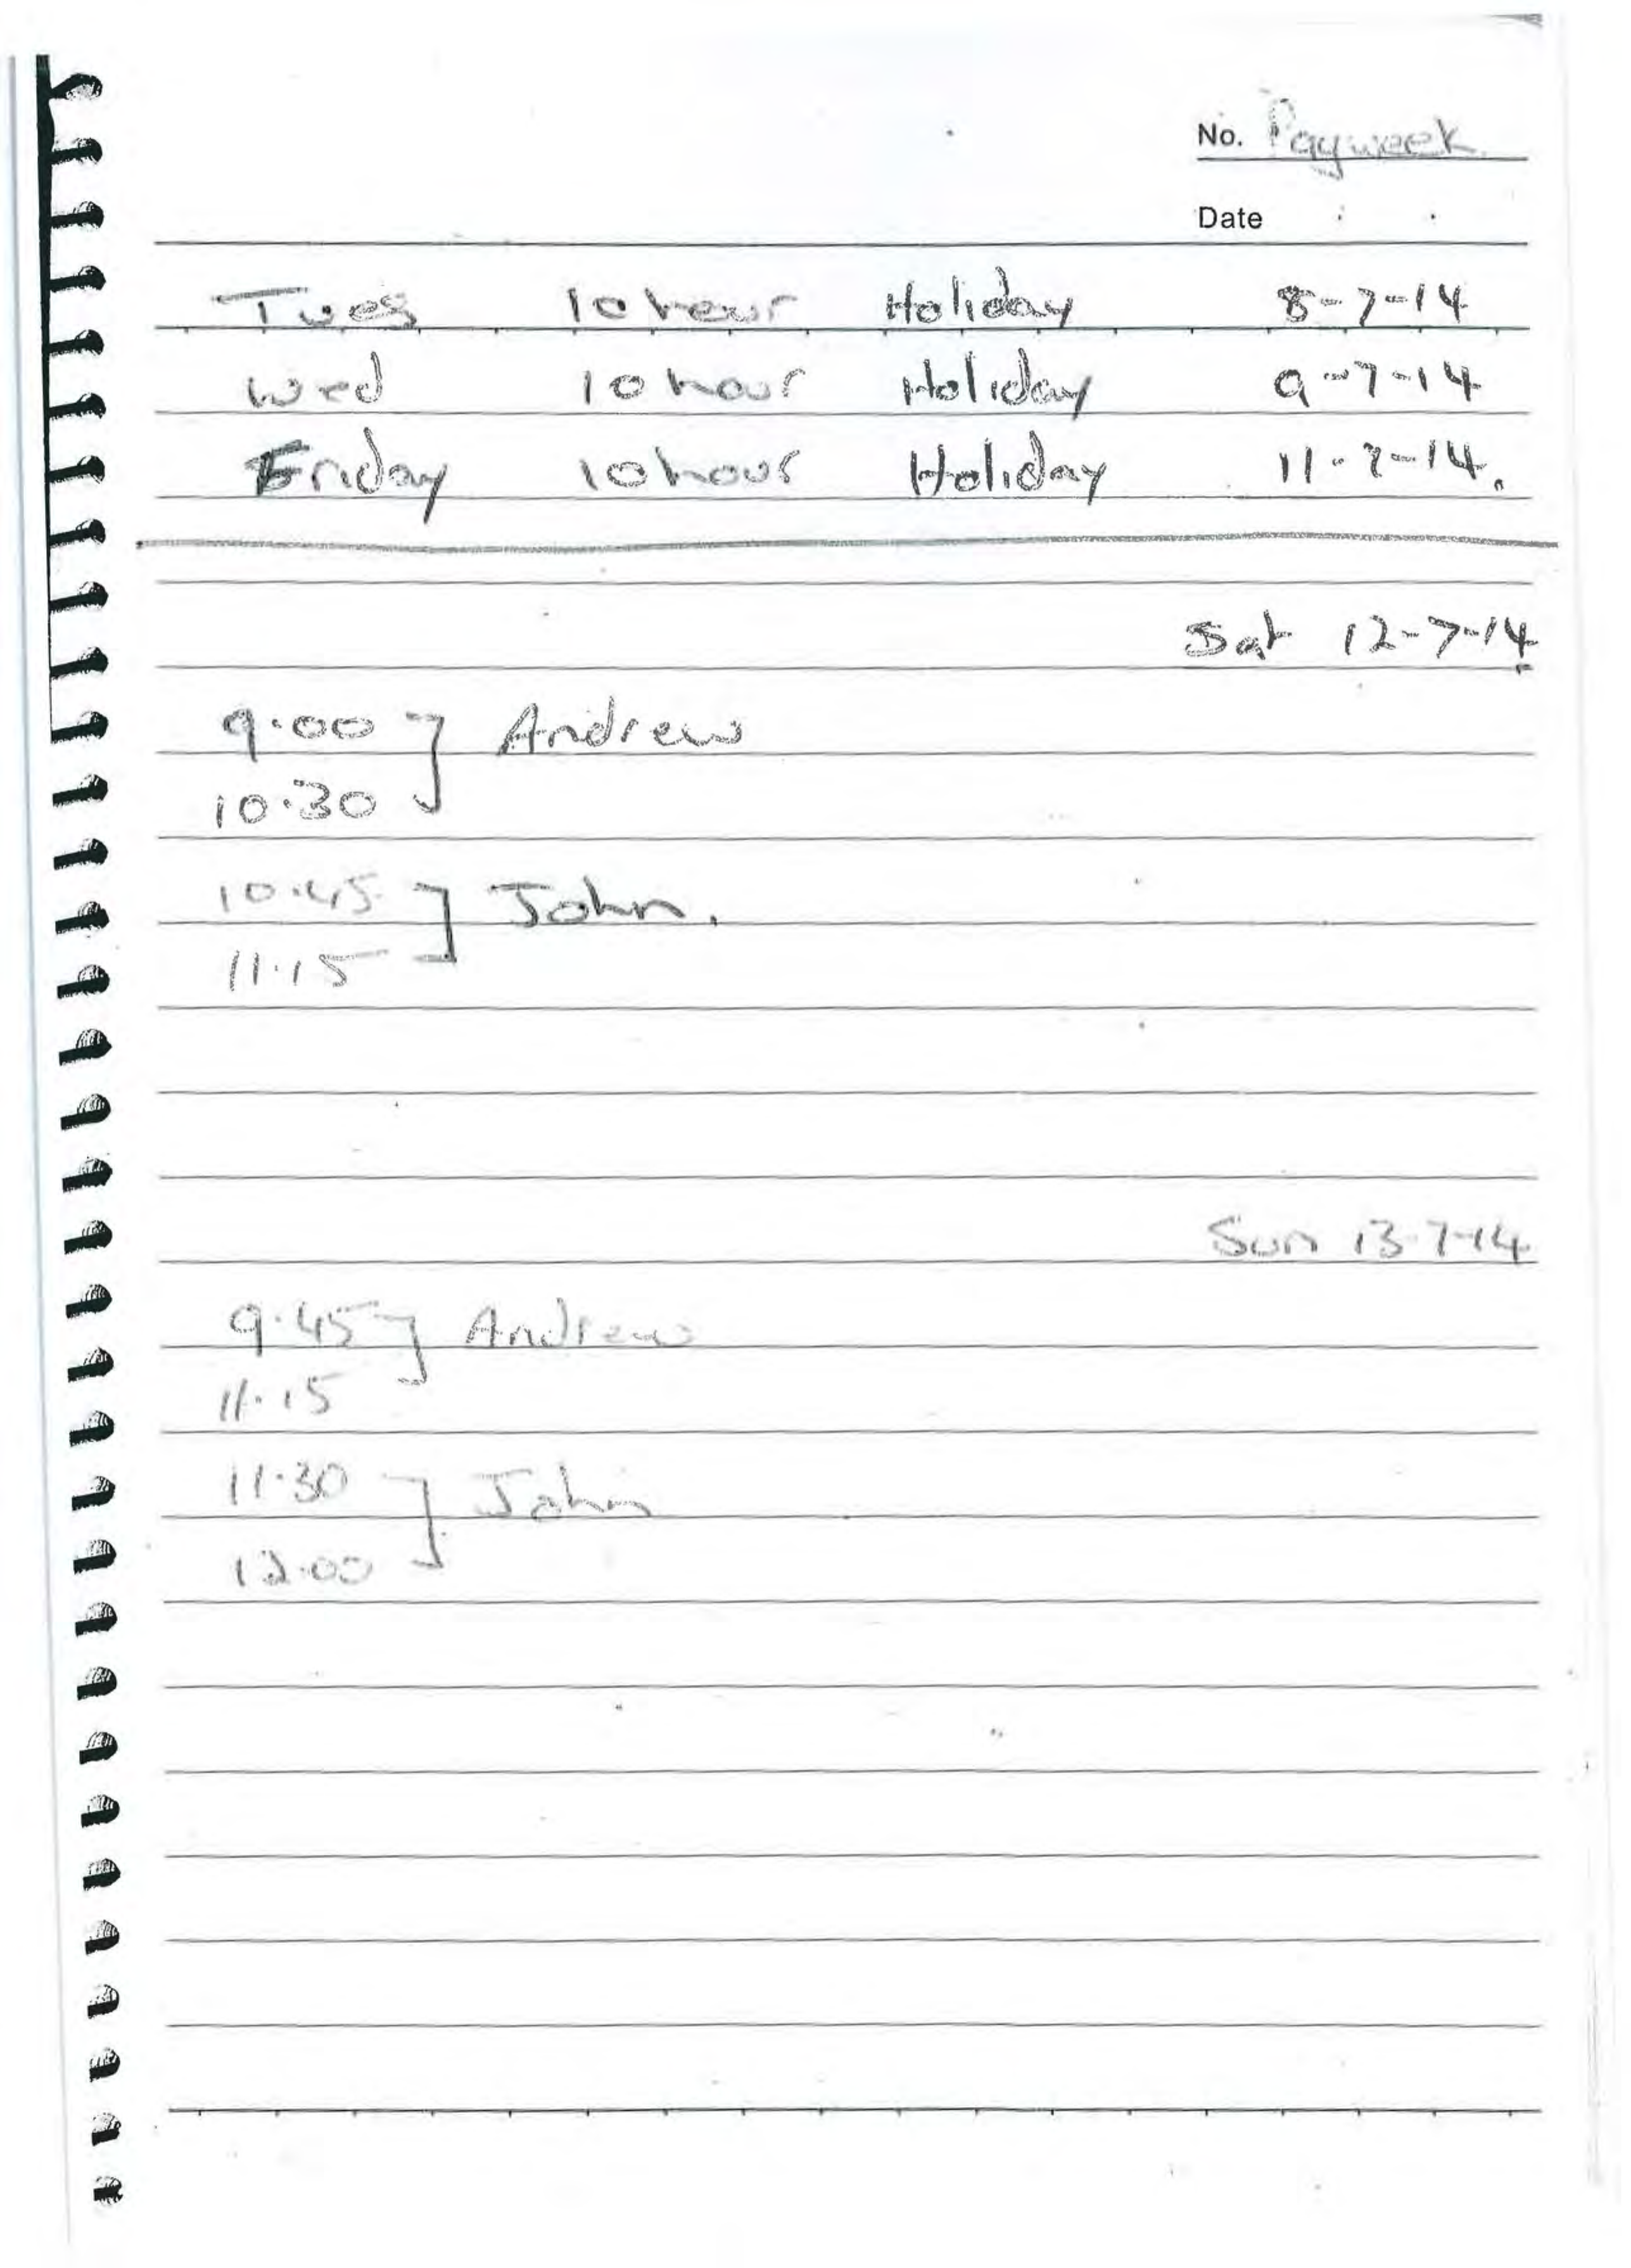 No. Payweek
Date
Tues 10 hour Holiday 8-7-14
Wed 10 hour Holiday 9-7-14
Friday 10 hour Holiday 11-7-14.
Sat 12-7-14
9.00 ] Andrew
10.30
10.45 ] John.
11.15
Sun 13-7-14
9.45 ] Andrew
11.15
11.30 ] John
12.00